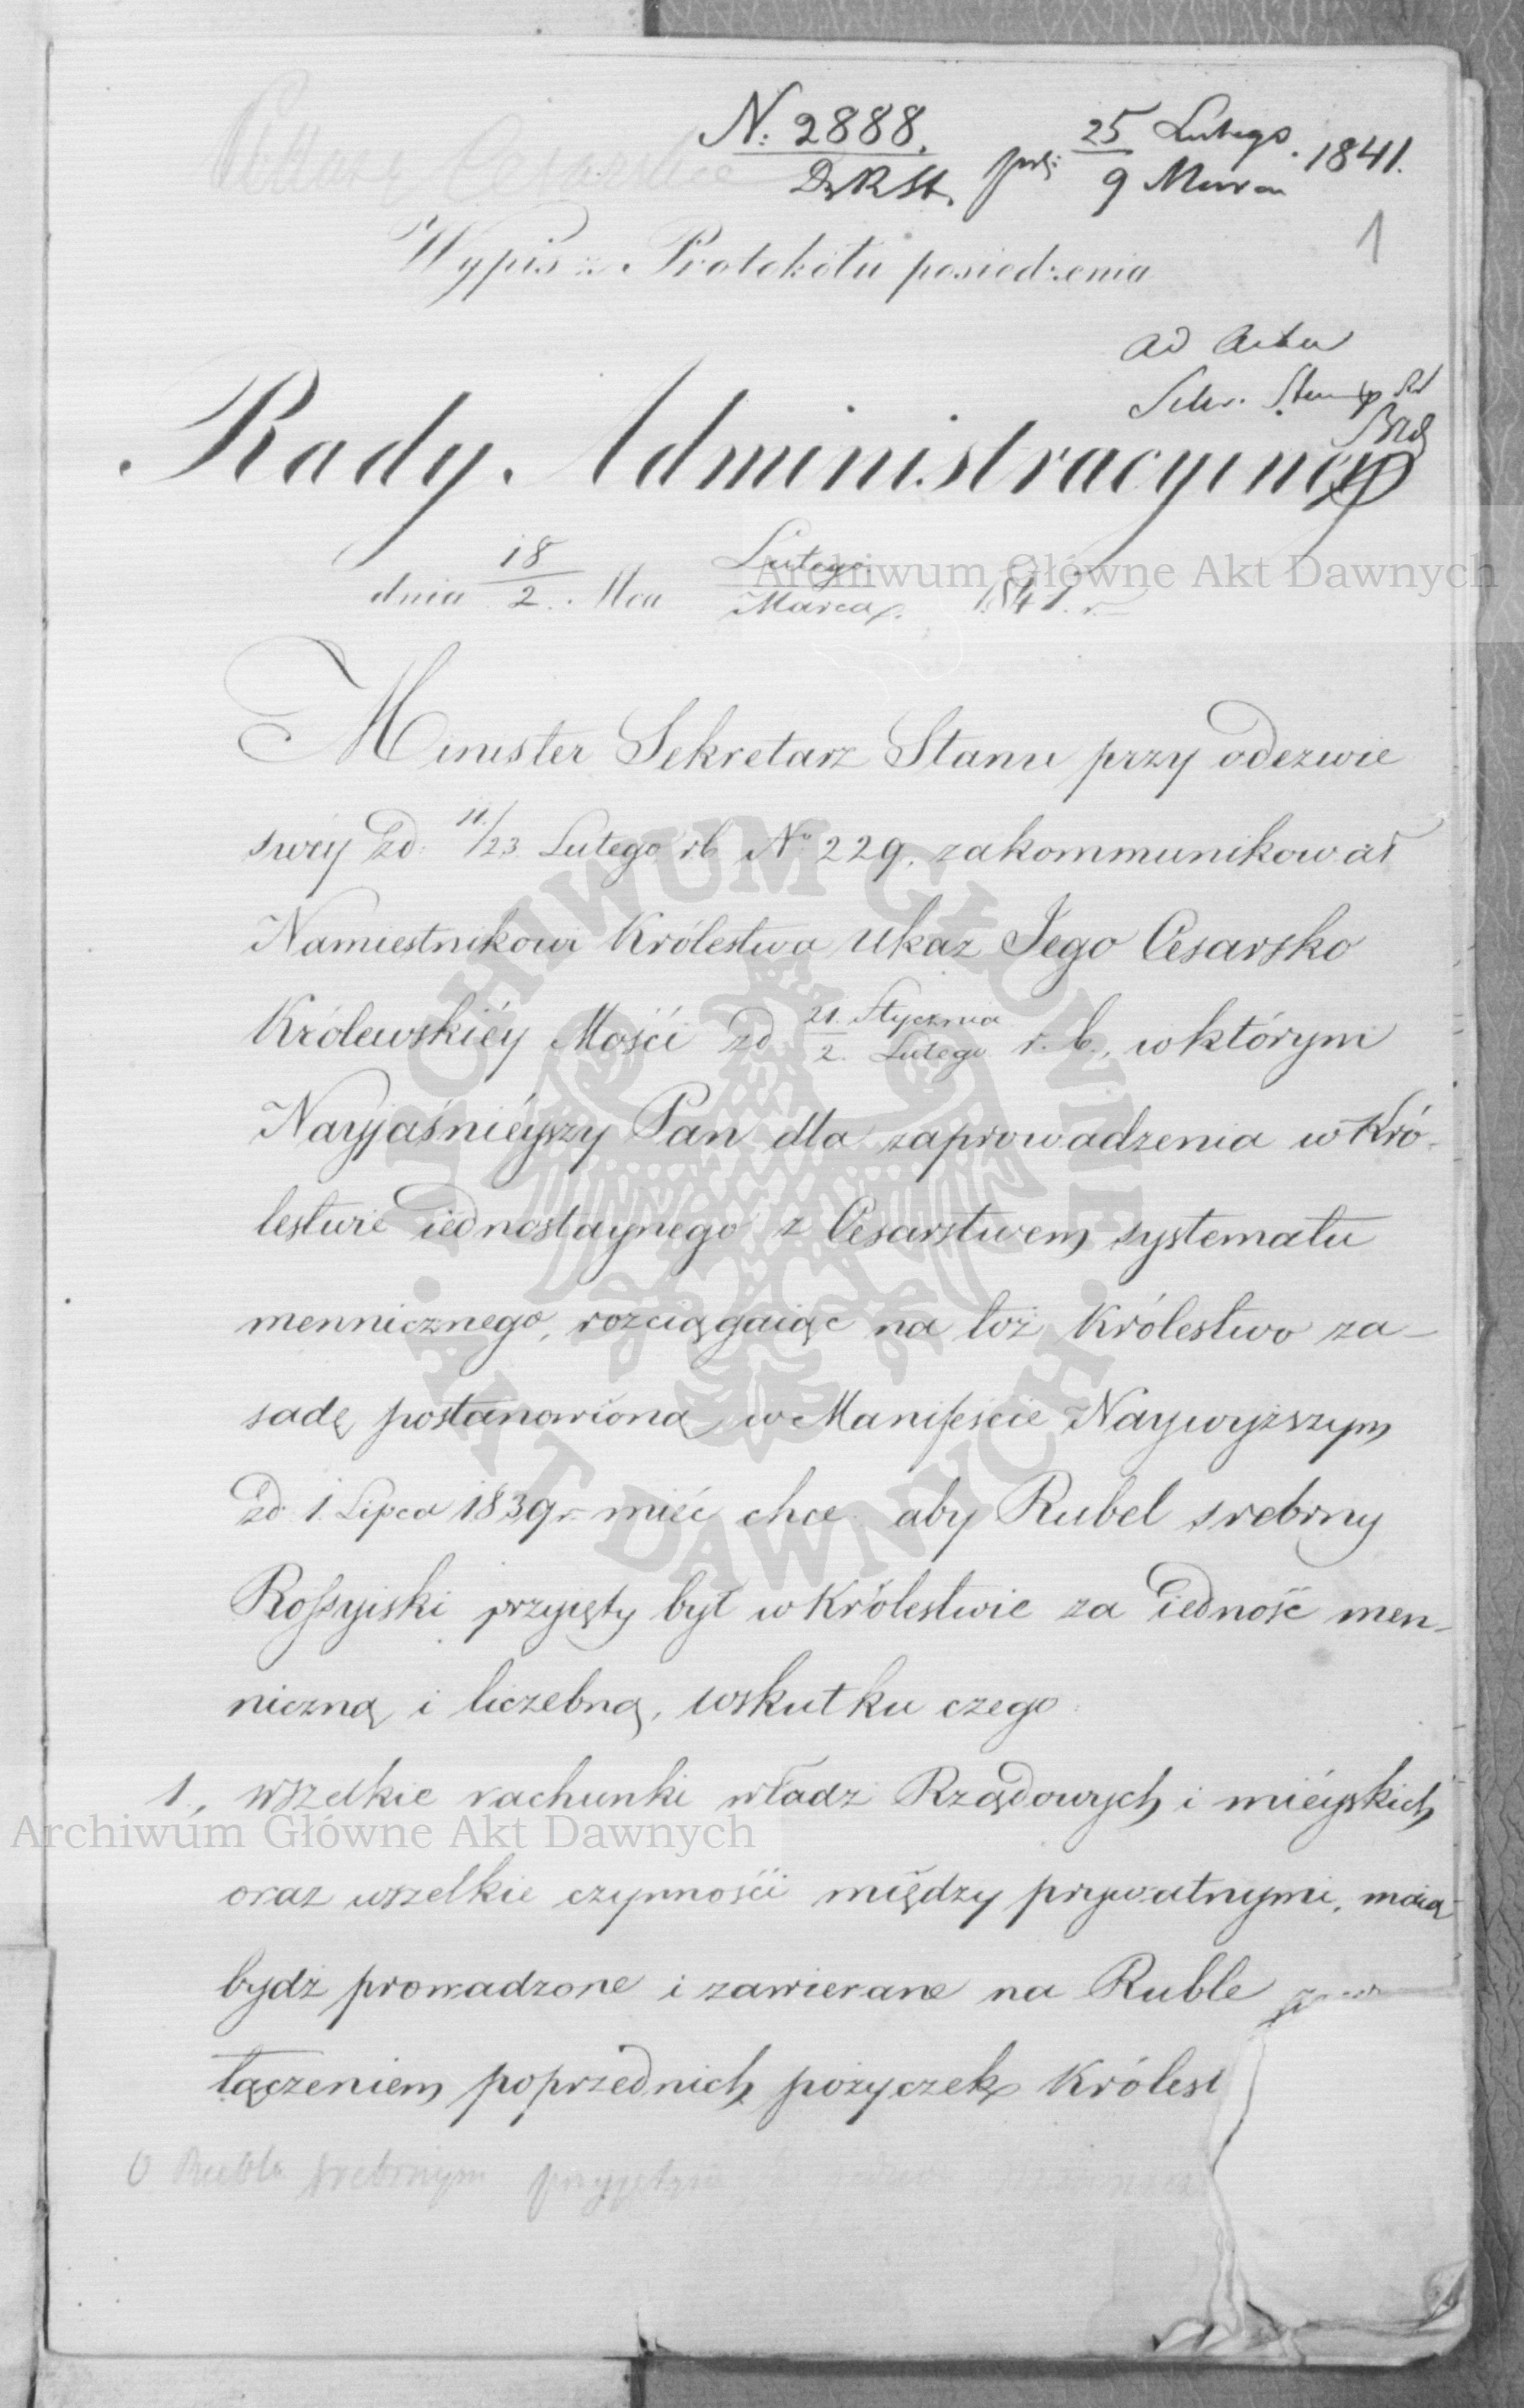 N: 2888.
25 Lutego
9 Marca 1841.
1
Wypis z Protokółu posiedzenia
ad Acta
Rady Administracyiney
dnia 18/2 Mca Lutego/Marca 1841. r.
Minister Sekretarz Stanu przy odezwie
swéy zd: 11/23 Lutego r.b. No 229. zakommunikował
Namiestnikowi Królestwa Ukaz Jego Cesarsko
Królewskiéy Mości zd 21. Stycznia/2. Lutego r. b., w którym
Nayjaśniéyszy Pan dla zaprowadzenia w Kró-
lestwie iednostaynego z Cesarstwem systematu
mennicznego, rozciągaiąc na toż Królestwo za-
sadę postanowioną w Manifeście Naywyższym
zd 1. Lipca 1839 r. mieć chce aby Rubel srebrny
Rossyiski przyięty był w Królestwie za iedność men-
niczną i liczebną, wskutku czego:
1., wszelkie rachunki władz Rządowych i mieyskich
oraz wszelkie czynności między prywatnymi, maią
bydź prowadzone i zawierane na Ruble
łączeniem poprzednich pożyczek Królest
O Rublu srebrnym
Archiwum Główne Akt Dawnych
Archiwum Główne Akt Dawnych
ARCHIWUM GŁÓWNE · AKT DAWNYCH ·